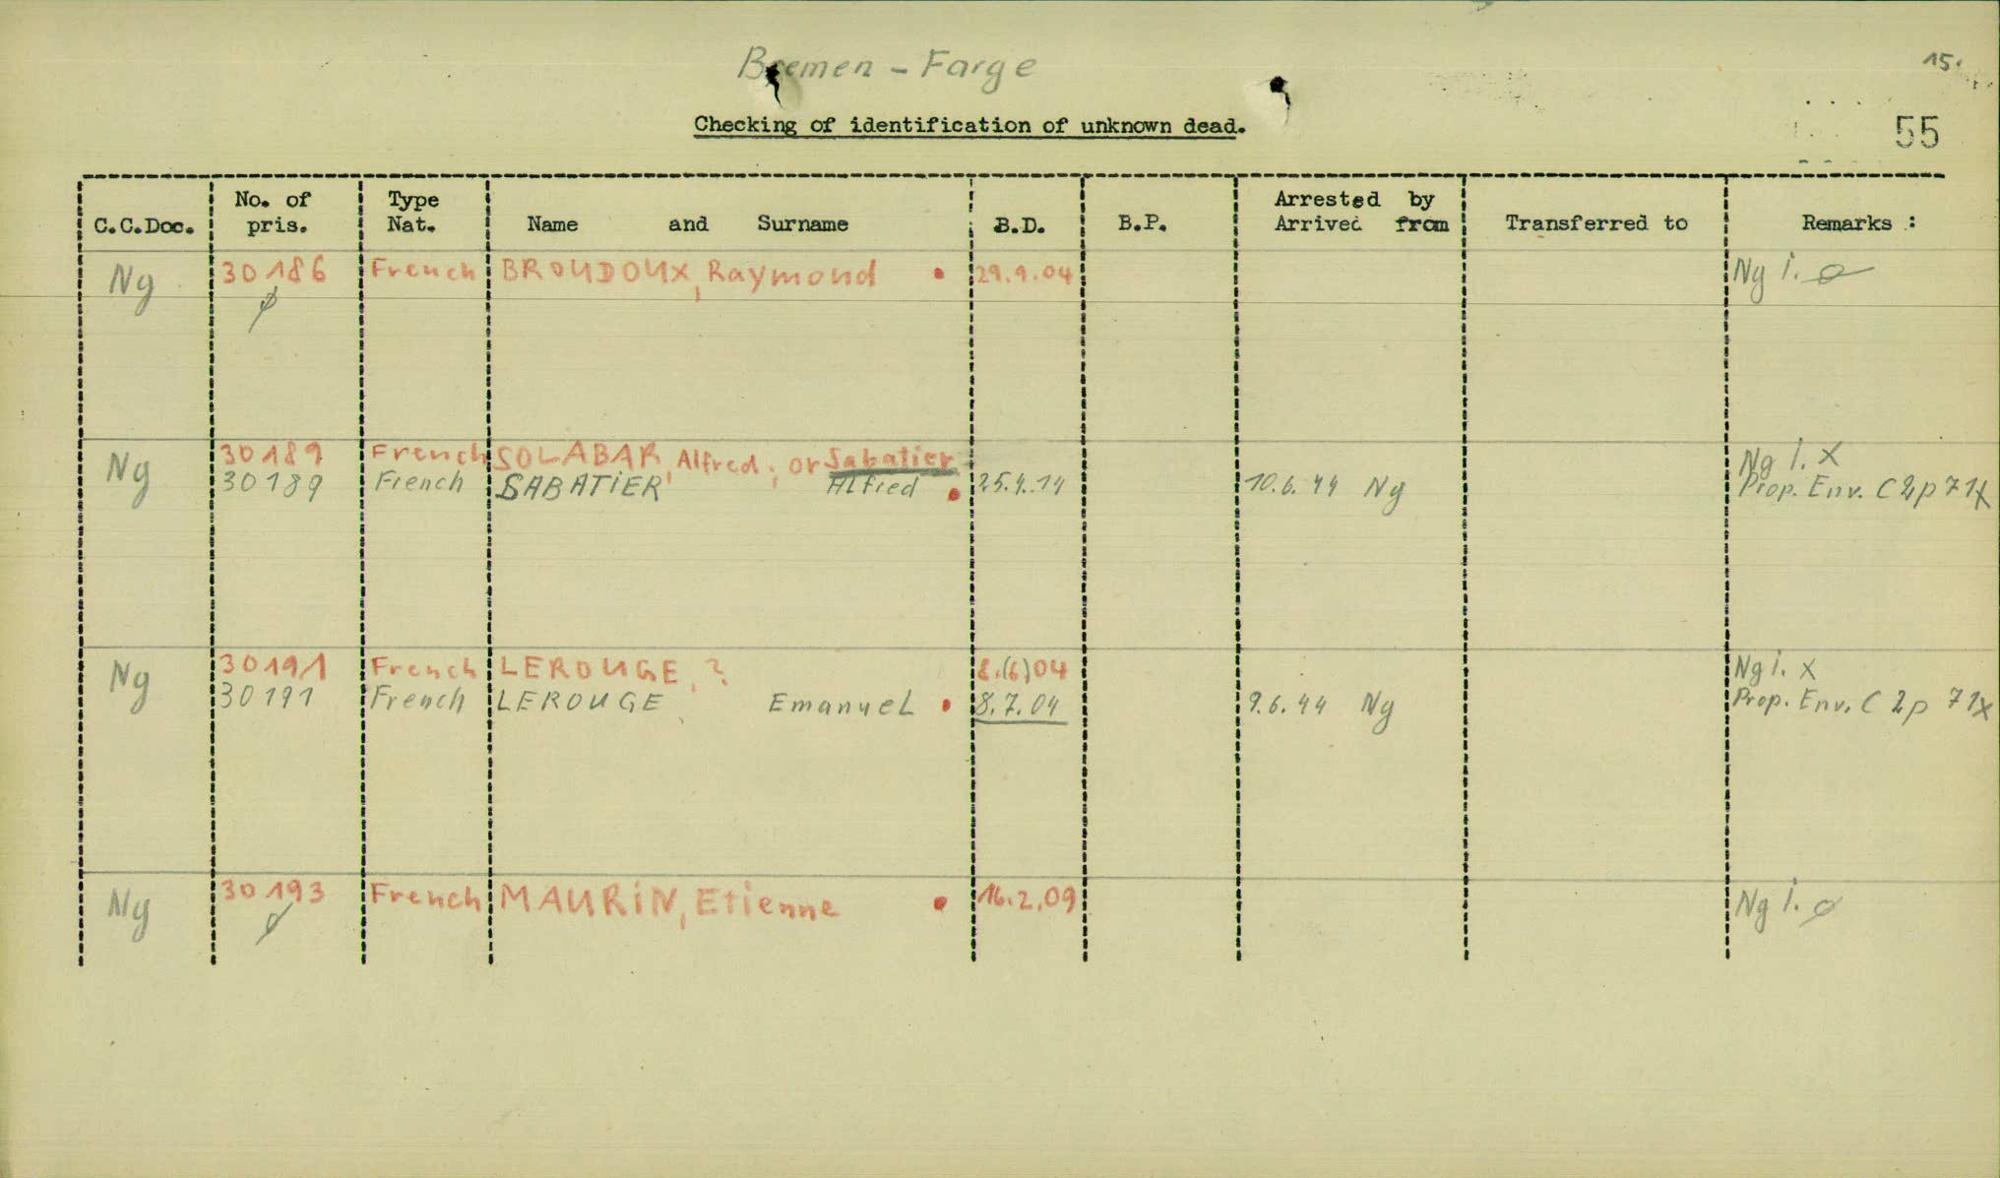 Bremen - Farge
15.
Checking of identification of unknown dead.
55
C.C.Doc. No. of pris. Type Nat. Name and Surname B.D. B.P. Arrested by Arrived from Transferred to Remarks :
Ng 30186 French BROUDOUX, Raymond 29.9.04 Ng i. ø
ø
Ng 30189 French SOLABAR, Alfred, or Sabatier Ng i. X
30189 French SABATIER Alfred 25.4.14 10.6.44 Ng Prop. Env. C 2 p 71x
Ng 30191 French LEROUGE, ? 8.(6)04 Ng i. x
30191 French LEROUGE, Emanuel 8.7.04 9.6.44 Ng Prop. Env. C 2 p 71x
Ng 30193 French MAURIN, Etienne 16.2.09 Ng i. ø
ø